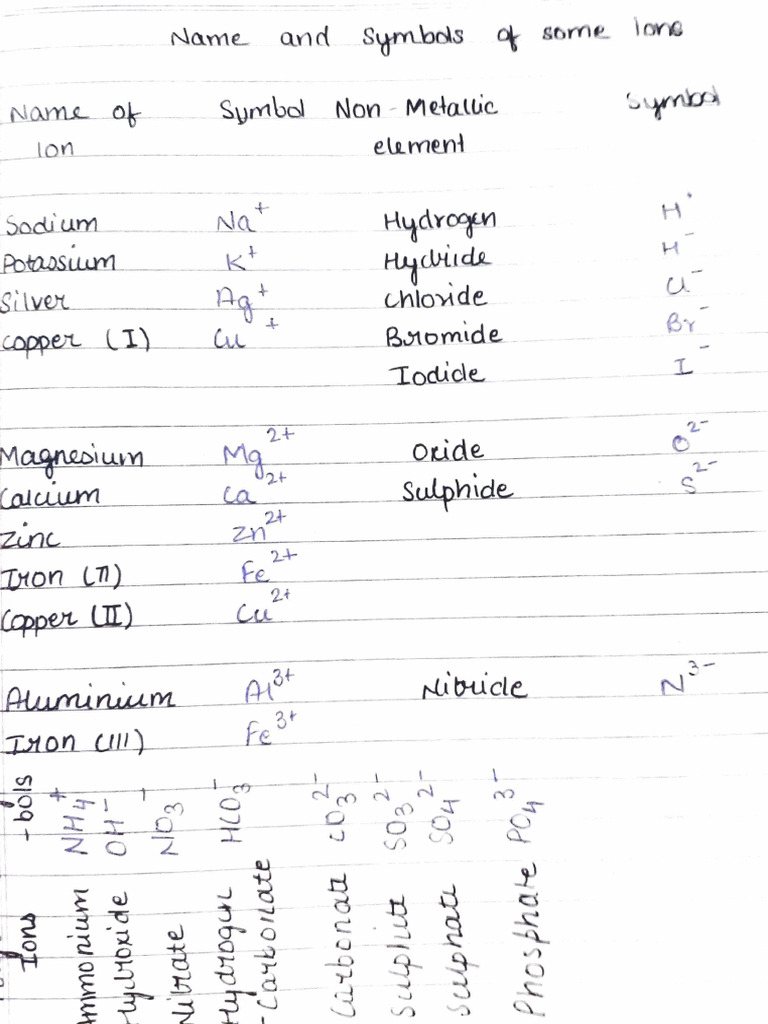 Name and Symbols of some Ions
Name of Symbol Non-Metallic Symbol
Ion element
Sodium Na⁺ Hydrogen H⁺
Potassium K⁺ Hydride H⁻
Silver Ag⁺ Chloride Cl⁻
Copper (I) Cu⁺ Bromide Br⁻
Iodide I⁻
Magnesium Mg²⁺ Oxide O²⁻
Calcium Ca²⁺ Sulphide S²⁻
Zinc Zn²⁺
Iron (II) Fe²⁺
Copper (II) Cu²⁺
Aluminium Al³⁺ Nitride N³⁻
Iron (III) Fe³⁺
Ions -bols
Ammonium NH₄⁺
Hydroxide OH⁻
Nitrate NO₃⁻
Hydrogen HCO₃⁻
-Carbonate
Carbonate CO₃²⁻
Sulphite SO₃²⁻
Sulphate SO₄²⁻
Phosphate PO₄³⁻